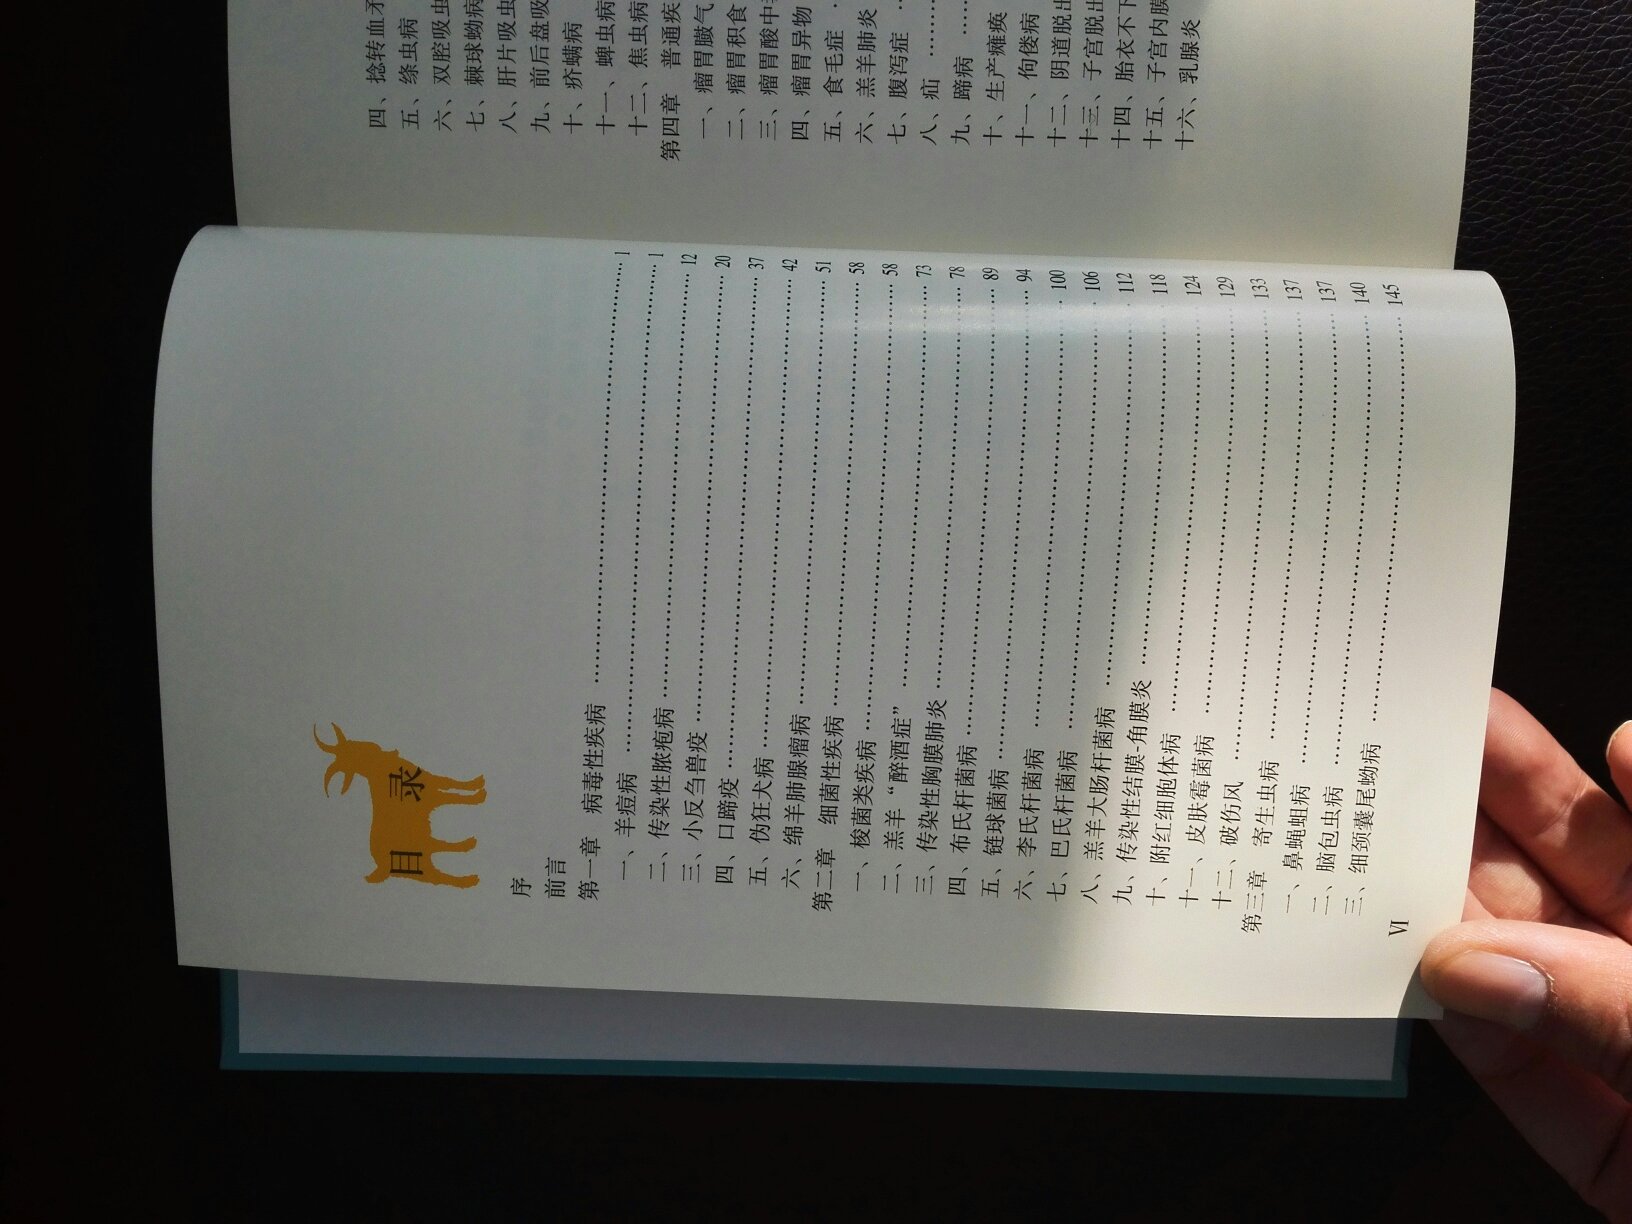 目录
序
前言
第一章 病毒性疾病 …… 1
一、羊痘病 …… 1
二、传染性脓疱病 …… 12
三、小反刍兽疫 …… 20
四、口蹄疫 …… 37
五、伪狂犬病 …… 42
六、绵羊肺腺瘤病 …… 51
第二章 细菌性疾病 …… 58
一、梭菌类疾病 …… 58
二、羔羊“醉酒症” …… 73
三、传染性胸膜肺炎 …… 78
四、布氏杆菌病 …… 89
五、链球菌病 …… 94
六、李氏杆菌病 …… 100
七、巴氏杆菌病 …… 106
八、羔羊大肠杆菌病 …… 112
九、传染性结膜-角膜炎 …… 118
十、附红细胞体病 …… 124
十一、皮肤霉菌病 …… 129
十二、破伤风 …… 133
第三章 寄生虫病 …… 137
一、鼻蝇蛆病 …… 137
二、脑包虫病 …… 140
三、细颈囊尾蚴病 …… 145
VI
四、捻转血矛
五、绦虫病
六、双腔吸虫
七、棘球蚴病
八、肝片吸虫
九、前后盘吸
十、疥螨病
十一、蜱虫病
十二、焦虫病
第四章 普通疾
一、瘤胃臌气
二、瘤胃积食
三、瘤胃酸中
四、瘤胃异物
五、食毛症
六、羔羊肺炎
七、腹泻症
八、疝 ……
九、蹄病 ……
十、生产瘫痪
十一、佝偻病
十二、阴道脱出
十三、子宫脱出
十四、胎衣不下
十五、子宫内膜
十六、乳腺炎